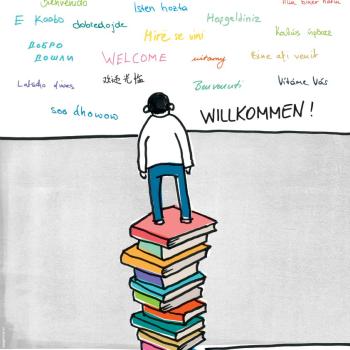 Bienvenido
Isten hozta
E Kaabo
dobredojde
Hoşgeldiniz
Mirë se vini
ДОБРО
ДОШЛИ
WELCOME
witamy
Bine ați venit
Latcho dives
欢迎光临
Benvenuti
Vítáme Vás
soo dhowow
WILLKOMMEN!